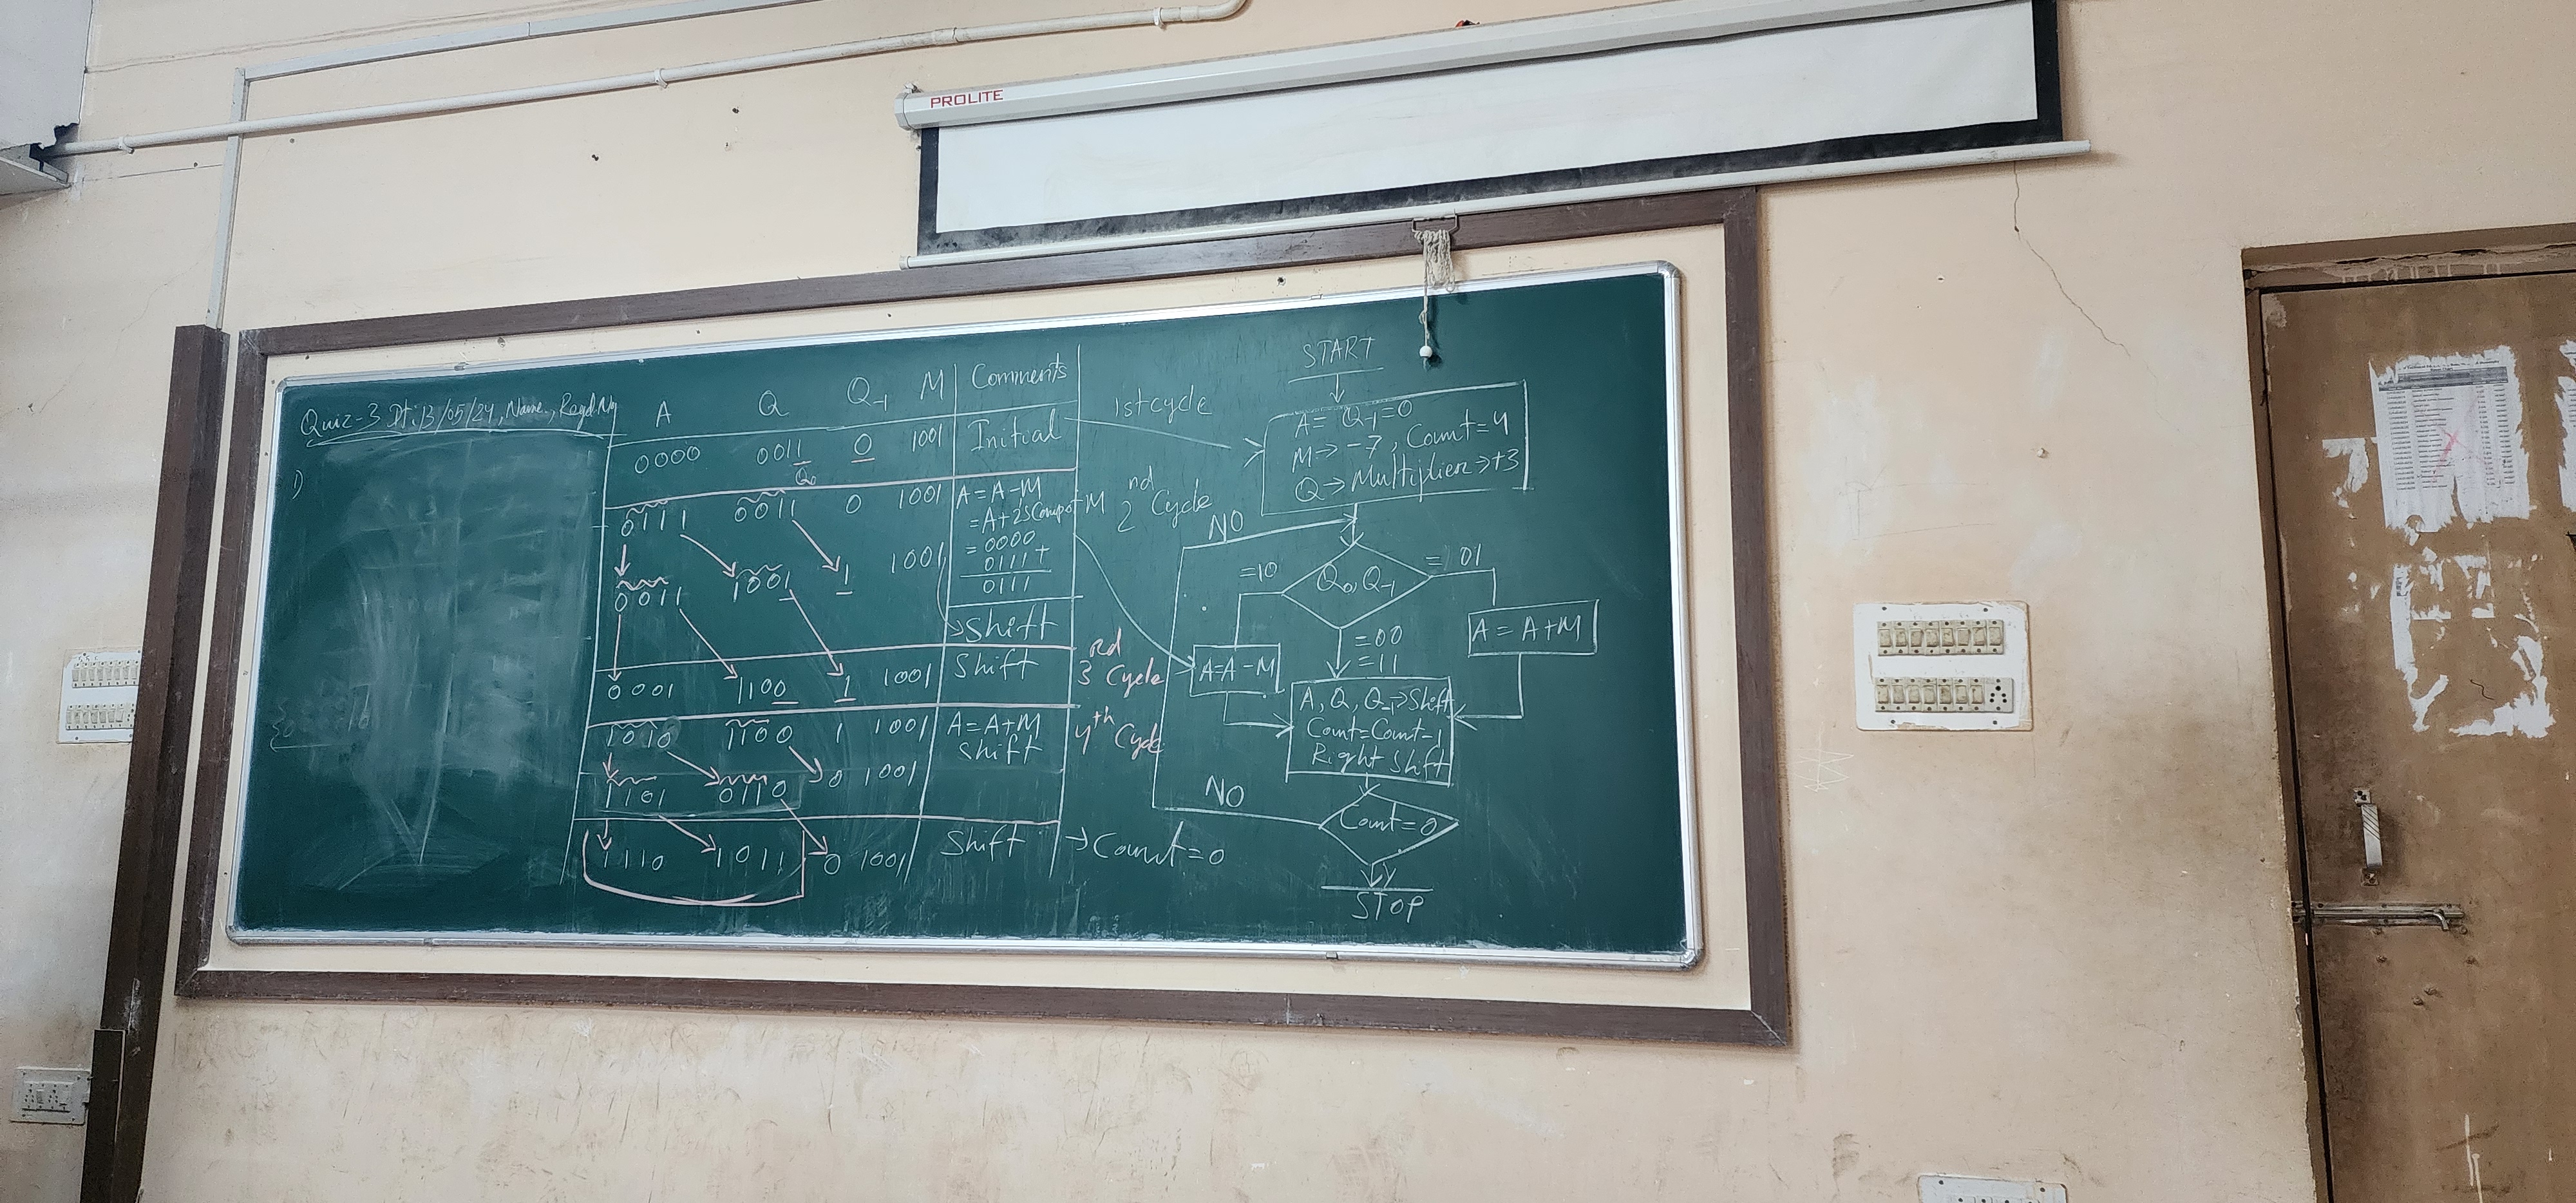 PROLITE
Quiz-3 Dt:13/05/24, Name, Regd.No
1)
A Q Q-1 M Comments
0000 0011 0 1001 Initial
Q0
0111 0011 0 1001 A = A-M
= A+2's Comp of M
= 0000
0111 +
0111
0011 1001 1 1001 Shift
0001 1100 1 1001 Shift
1010 1100 1 1001 A = A+M
Shift
1101 0110 0 1001
1110 1011 0 1001 Shift → Count = 0
1st cycle
2nd Cycle
3rd Cycle
4th Cycle
START
A = Q-1 = 0
M → -7, Count = 4
Q → Multiplier → +3
NO
=10 Q0, Q-1 = 01
=00
=11
A=A-M
A = A+M
A, Q, Q-1 → Shift
Count = Count-1
Right Shift
NO
Count = 0
Y
STOP